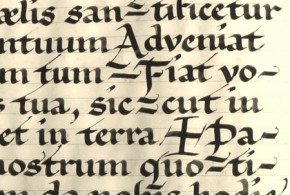 ælis san=tificetur
ntuum Adveniat
m tum=Fiat vo=
s tua, sic=cut in
et in terra + Pa=
nostrum quo=ti=
m da nobis hodie